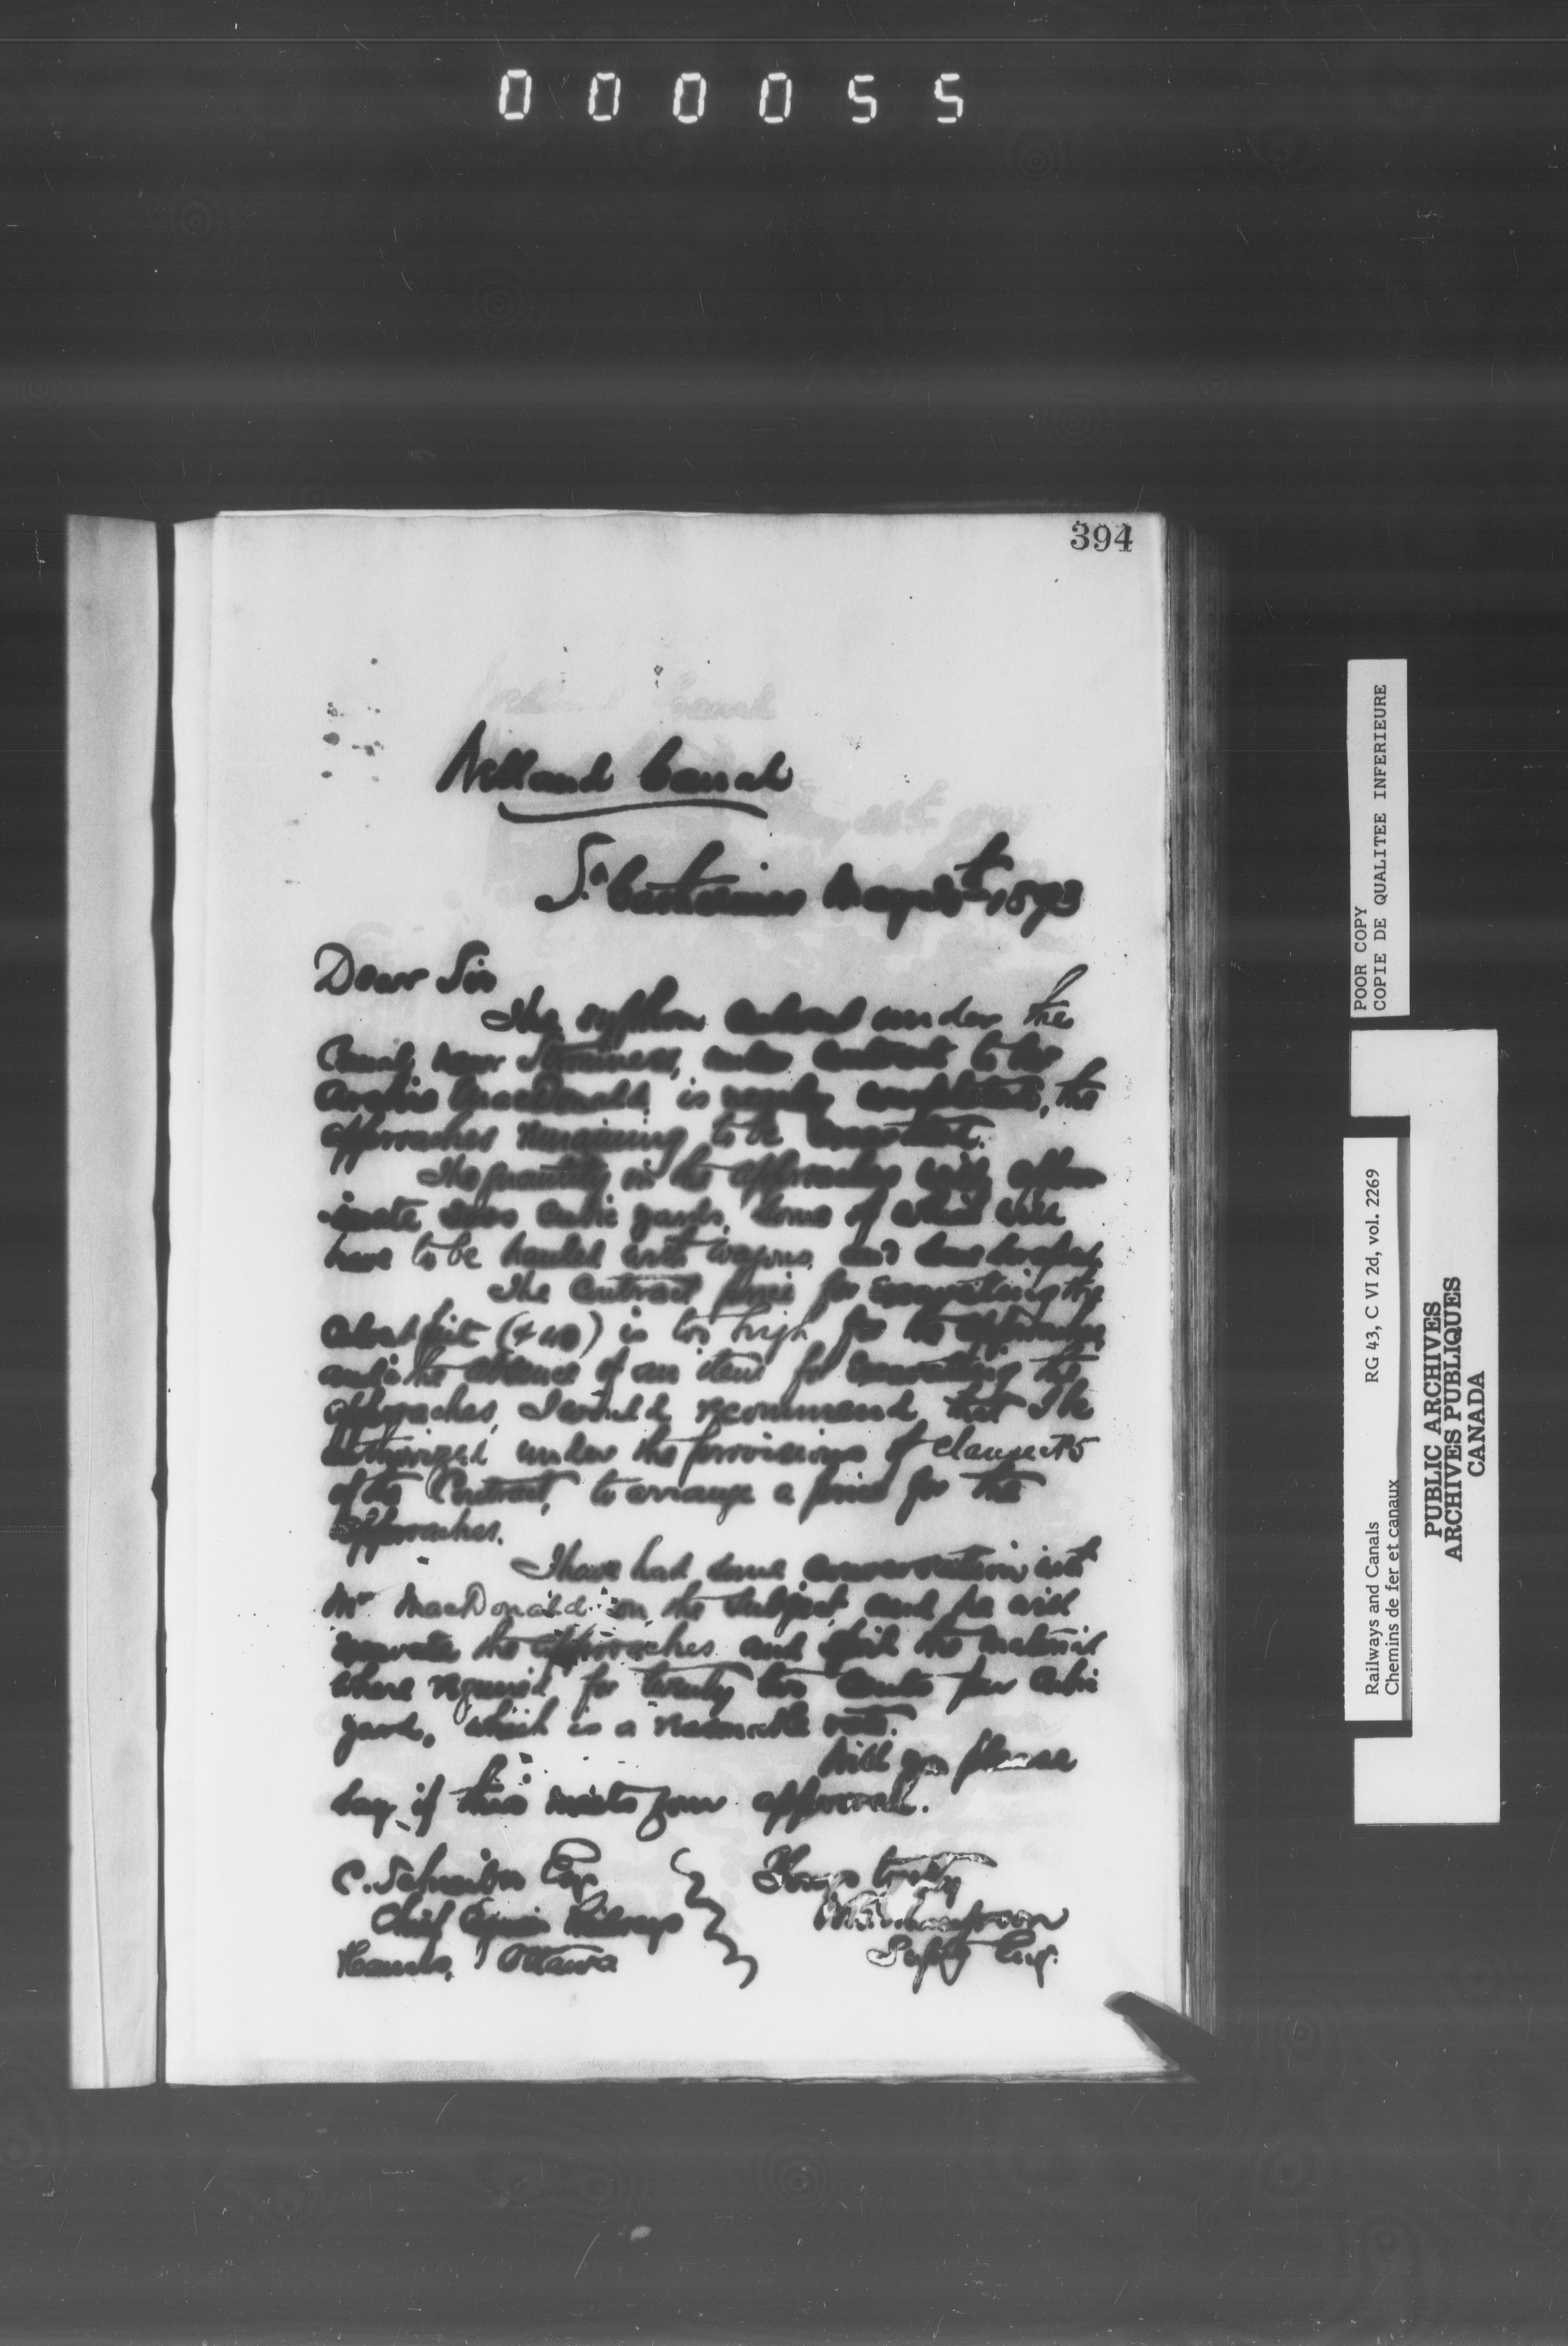 000055
394
Welland Canal
St Catharines May 1893
Dear Sir
The syphon culvert under the
Canal near under contract to
Archie MacDonald, is nearly completed, the
approaches remaining to be
The quantity in the approaches will approx
imate cubic yards, some of which will
have to be hauled with wagons and
The Contract price for excavating the
Culvert pit ( ) is too high for the approaches
and in the absence of an item for excavating the
approaches, I would recommend that I be
authorized under the provisions of clause
of the Contract, to arrange a price for the
approaches.
I have had some conversation with
Mr MacDonald on the subject and he will
excavate the approaches and spoil the material
where required for twenty two cents per cubic
yard, which is a reasonable rate.
Will you please
say if this meets your approval.
C. Schreiber Esq
Chief Engineer Railways
Canals, Ottawa
Yours truly
Supty Eng.
POOR COPY
COPIE DE QUALITEE INFERIEURE
Railways and Canals RG 43, C VI 2d, vol. 2269
Chemins de fer et canaux
PUBLIC ARCHIVES
ARCHIVES PUBLIQUES
CANADA